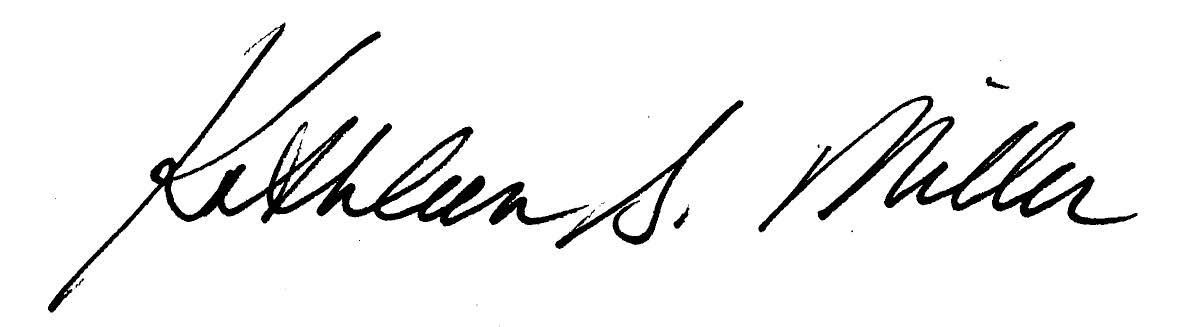 Kathleen S. Miller